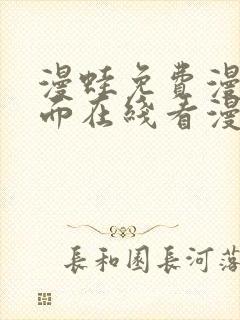 漫蛙免費漫
而在綫看漫
長和園長河落